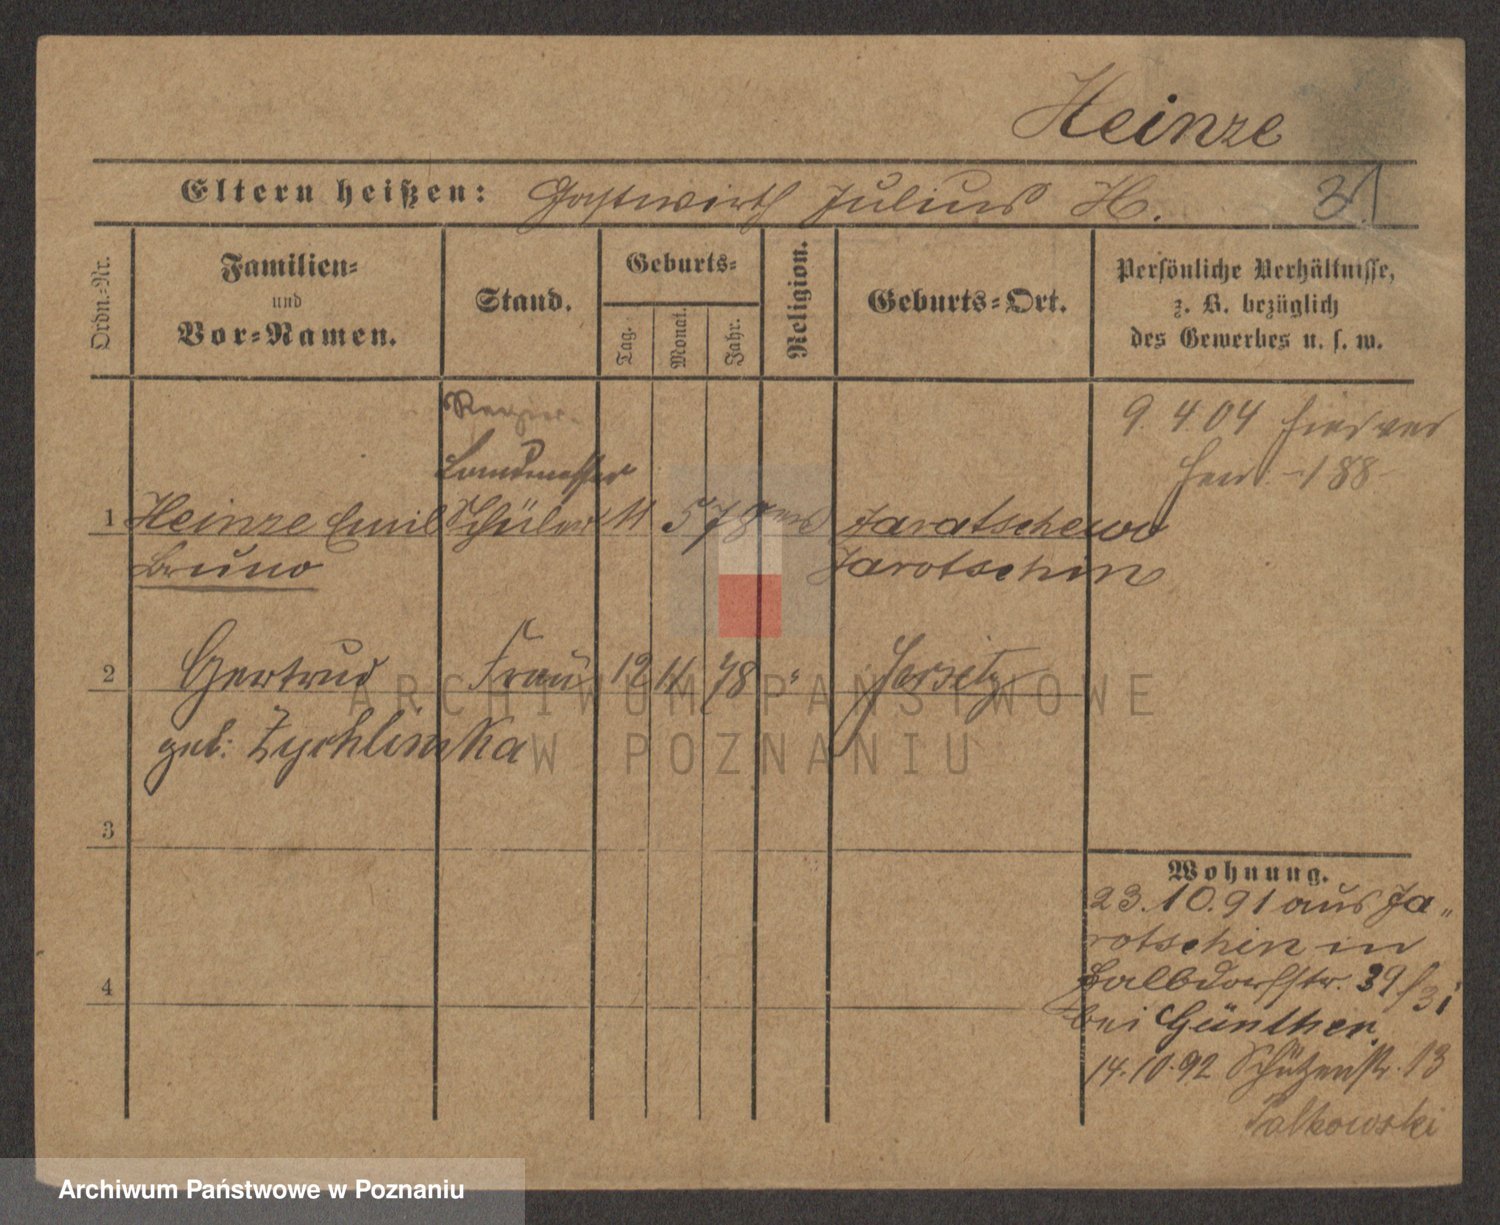 Heinze
Eltern heißen: Gastwirth Julius H.
Ordn.-Nr.
Familien-
und
Vor-Namen.
Stand.
Geburts-
Tag.
Monat.
Jahr.
Religion.
Geburts-Ort.
Persönliche Verhältnisse,
z. B. bezüglich
des Gewerbes u. s. w.
9. 4 04
188
Landmesser
1 Heinze Emil Schüler 11 5 78 Jaratschewo
Bruno Jarotschin
2 Gertrud Frau 12 11 78 " Jersitz
geb. Zychlinska
3
4
Wohnung.
23.10.91 aus Ja„
rotschin in
Halbdorfstr. 39
bei Günther.
14.10.92 Schützenstr. 13
Falkowski
ARCHIWUM PAŃSTWOWE
W POZNANIU
Archiwum Państwowe w Poznaniu